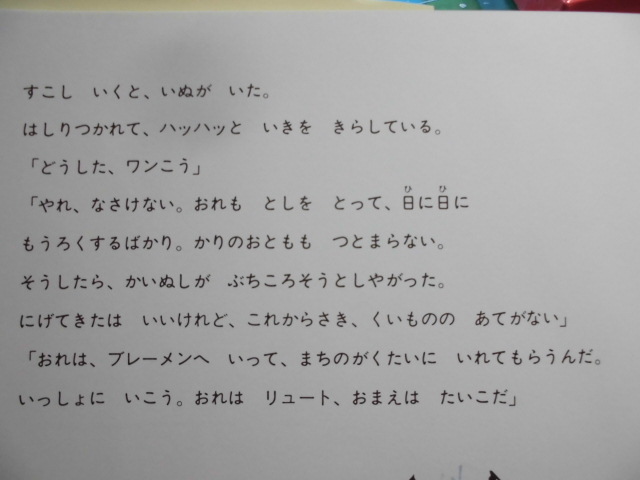 すこし　いくと、いぬが　いた。
はしりつかれて、ハッハッと　いきを　きらしている。
「どうした、ワンこう」
「やれ、なさけない。おれも　としを　とって、日に日に
もうろくするばかり。かりのおともも　つとまらない。
そうしたら、かいぬしが　ぶちころそうとしやがった。
にげてきたは　いいけれど、これからさき、くいものの　あてがない」
「おれは、ブレーメンへ　いって、まちのがくたいに　いれてもらうんだ。
いっしょに　いこう。おれは　リュート、おまえは　たいこだ」